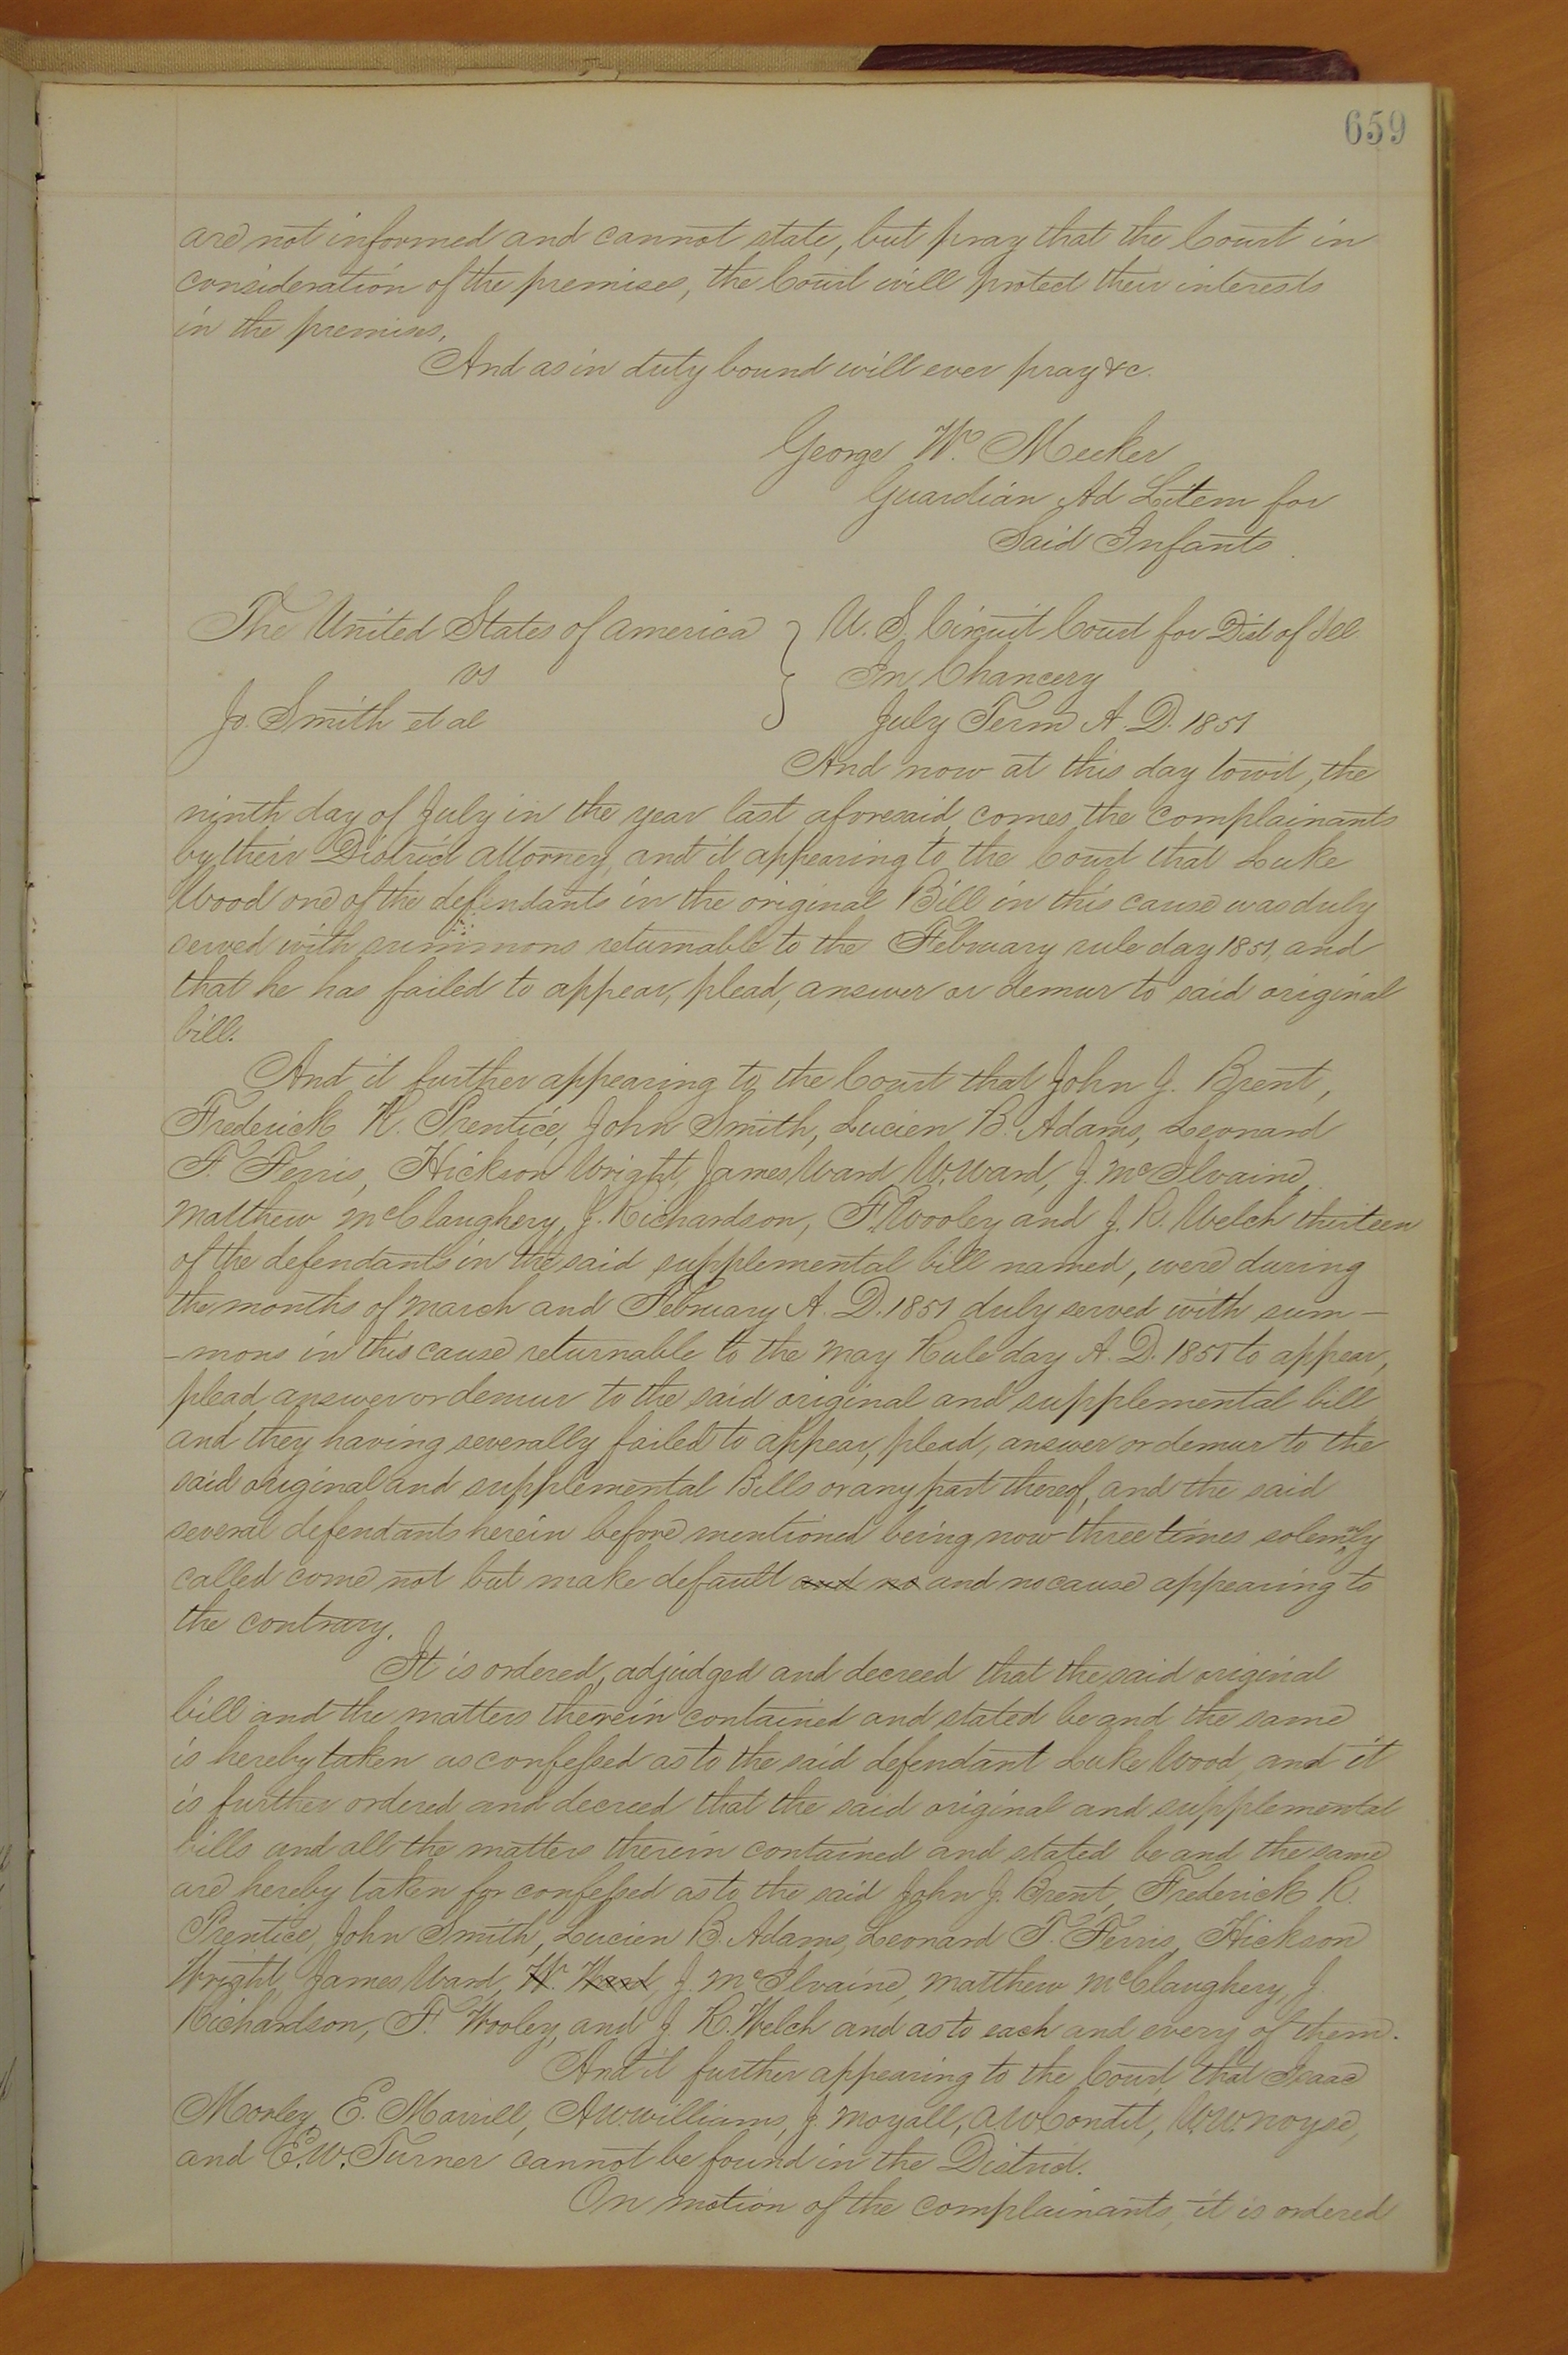 659
are not informed and cannot state, but pray that the Court in
consideration of the premises, the Court will protect their interests
in the premises.
And as in duty bound will ever pray &c.
George W. Meeker
Guardian Ad Litem for
Said Infants.
The United States of America } U. S. Circuit Court for Dist of Ill
vs In Chancery
Jo. Smith et al July Term A. D. 1851
And now at this day towit, the
ninth day of July in the year last aforesaid comes the complainants
by their District attorney, and it appearing to the Court that Luke
Wood one of the defendants in the original Bill in this cause was duly
served with summons returnable to the February rule day 1851, and
that he has failed to appear, plead, answer or demur to said original
bill.
And it further appearing to the Court that John J. Brent,
Frederick R. Prentice, John Smith, Lucien B. Adams, Leonard
F. Ferris, Hickson Wright, James Ward W. Ward, J. McIlvaine,
Matthew McClaughery, J. Richardson, F. Wooley and J. R. Welch thirteen
of the defendants in the said supplemental bill named, were during
the months of March and February A. D. 1851 duly served with sum-
-mons in this cause returnable to the May Rule day A. D. 1851 to appear,
plead answer or demur to the said original and supplemental bill
and they having severally failed to appear, plead, answer or demur to the
said original and supplemental Bills or any part thereof, and the said
several defendants herein before mentioned being now three times solemnly
called come not but make default and no and no cause appearing to
the contrary.
It is ordered, adjudged and decreed that the said original
bill and the matters therein contained and stated be and the same
is hereby taken as confessed as to the said defendant Luke Wood, and it
is further ordered and decreed that the said original and supplemental
bills and all the matters therein contained and stated be and the same
are hereby taken for confessed as to the said John J. Brent, Frederick R.
Prentice, John Smith, Lucien B. Adams, Leonard T. Ferris, Hickson
Wright, James Ward, W. Ward, J. McIlvaine, Matthew McClaughery, J.
Richardson, F. Wooley, and J. R. Welch and as to each and every of them.
And it further appearing to the Court, that Isaac
Morley, E. Marrill, A W Williams, J. Moyall, A W Condit, W. W. Noyse,
and E. W. Turner cannot be found in the District.
On motion of the complainants, it is ordered